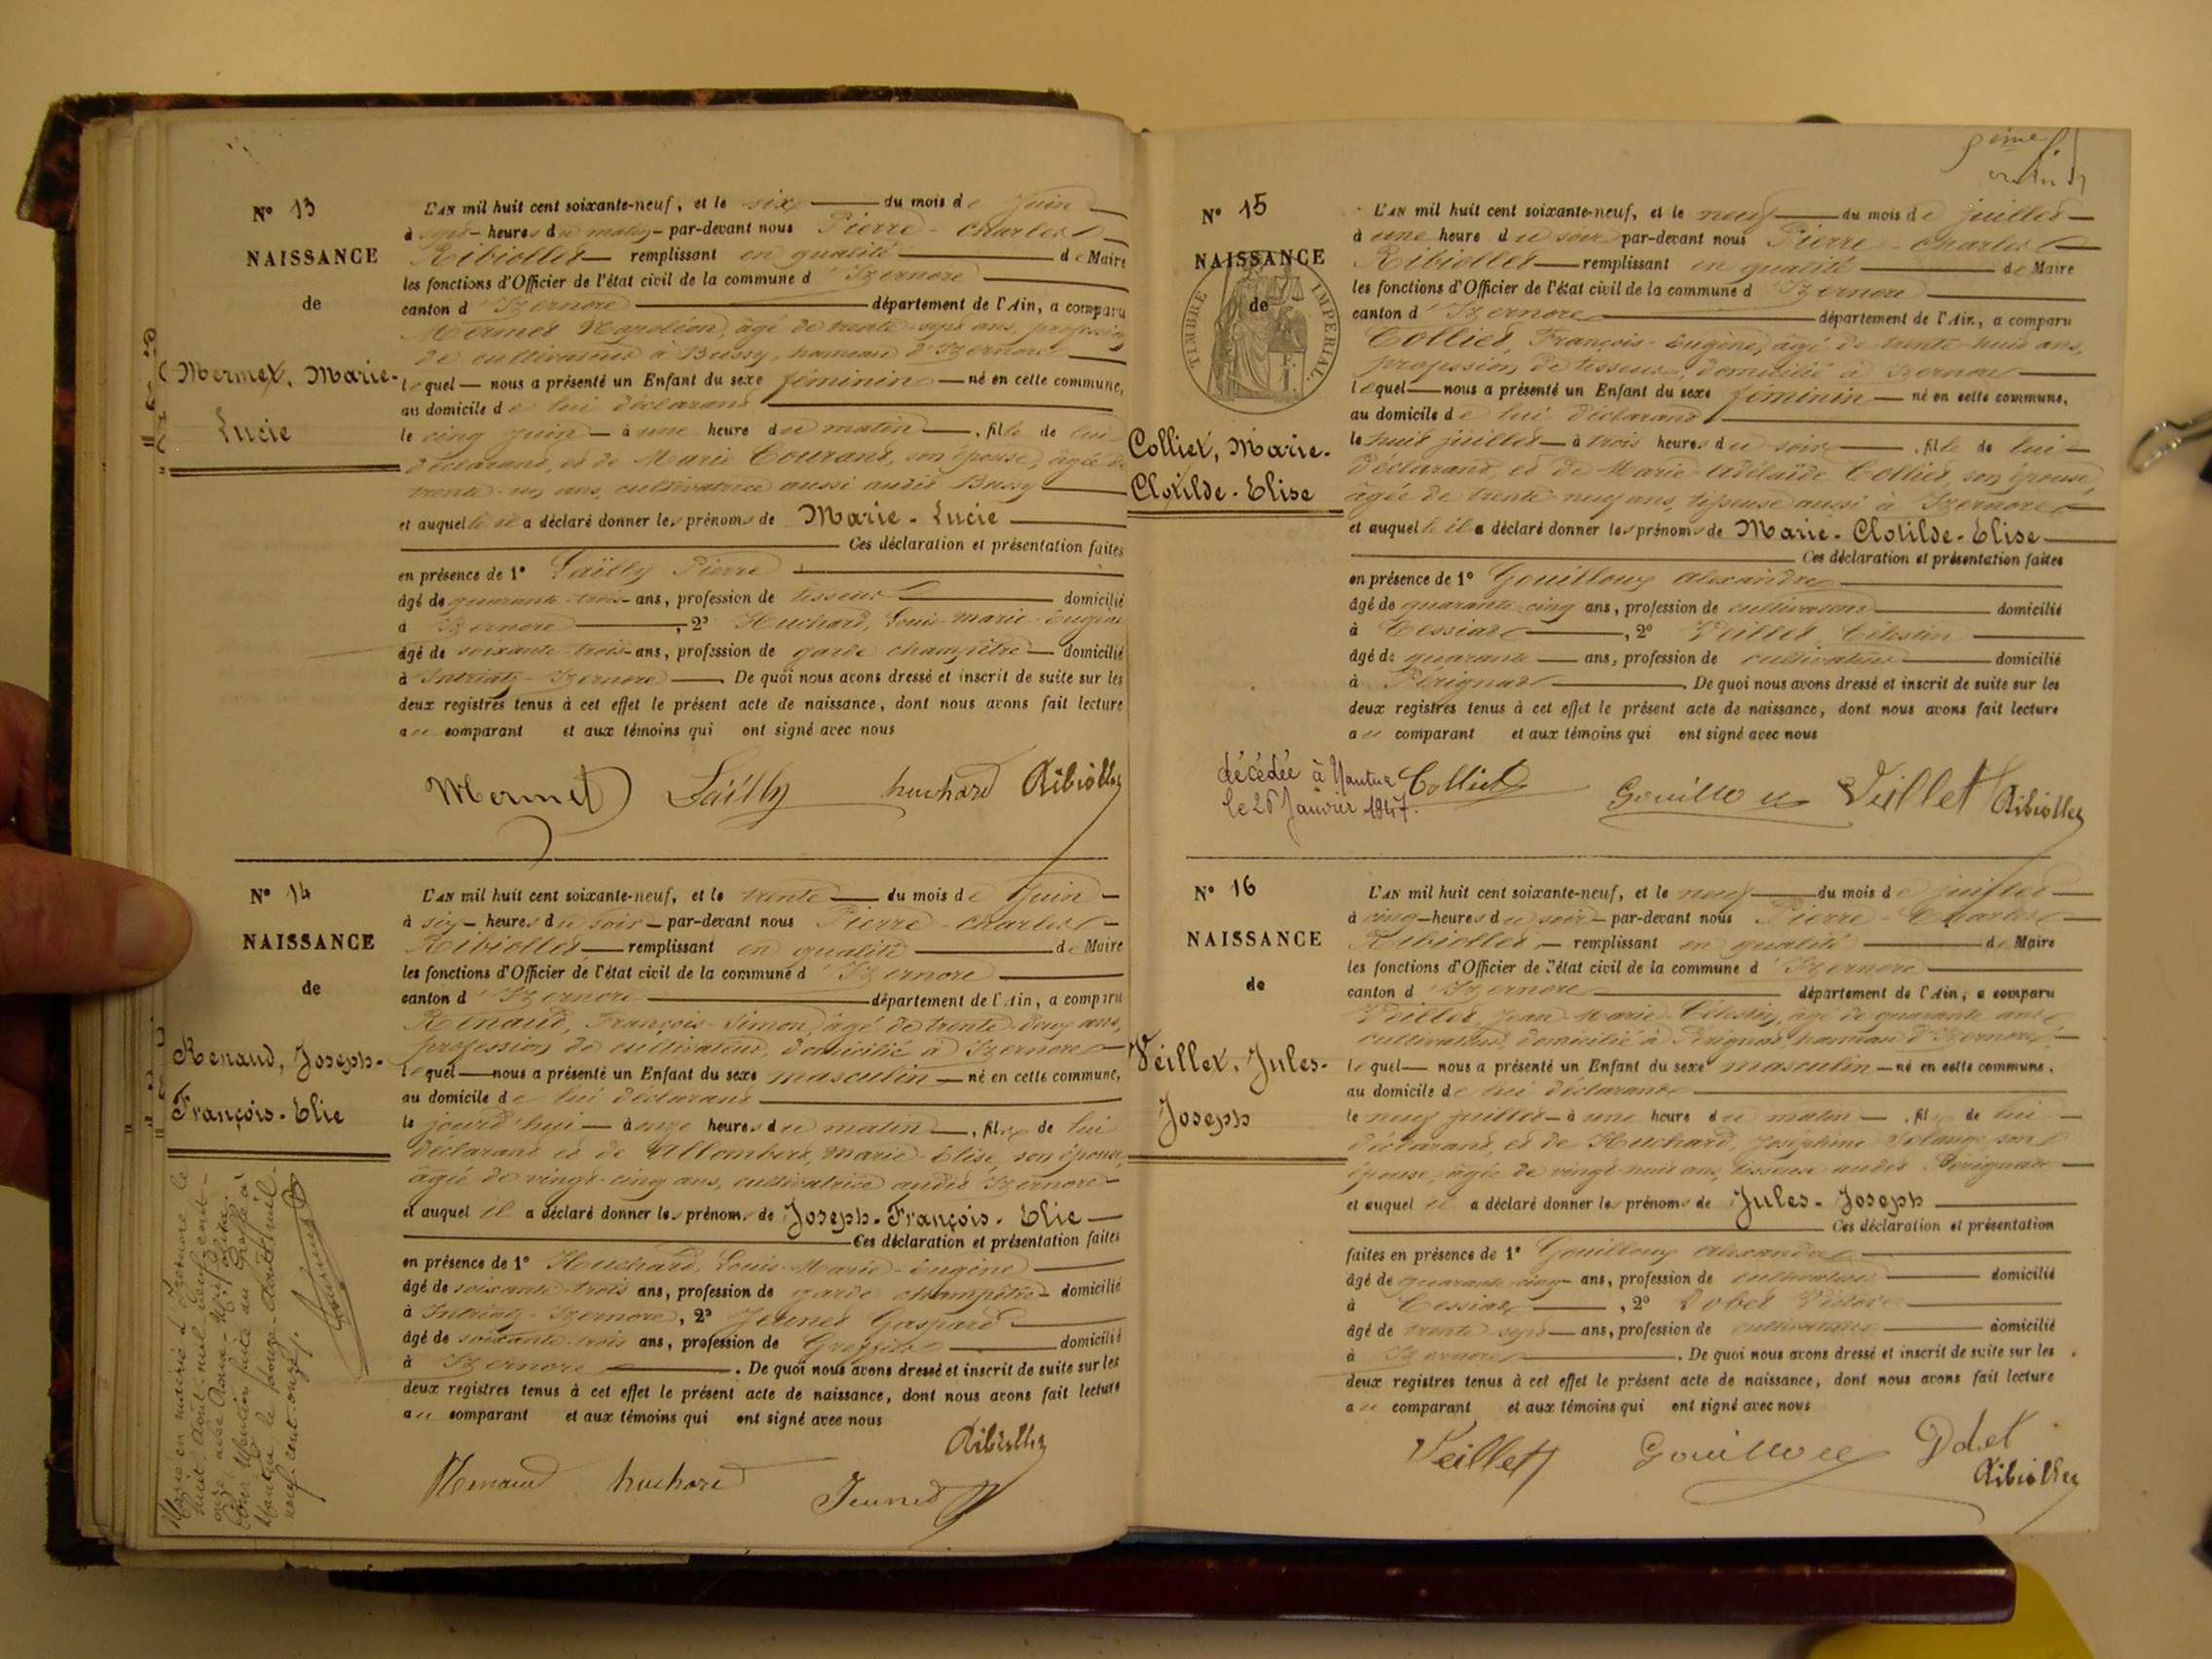 N° 13
NAISSANCE
de
Mermet, Marie-
Lucie
L'AN mil huit cent soixante-neuf, et le six du mois de Juin
à sept heures du matin par-devant nous Pierre-Charles
Ribiollet remplissant en qualité de Maire
les fonctions d'Officier de l'état civil de la commune d'Izernore
canton d'Izernore département de l'Ain, a comparu
Mermet Napoléon, âgé de trente-sept ans, profession
de cultivateur à Bussy, hameau d'Izernore
lequel nous a présenté un Enfant du sexe féminin né en cette commune,
au domicile de lui déclarant
le cinq juin à une heure du matin, fille de lui
déclarant, et de Marie Courant, son épouse, âgée de
trente-un ans, cultivatrice aussi audit Bussy
et auquelle il a déclaré donner les prénoms de Marie-Lucie
Ces déclaration et présentation faites
en présence de 1° Lailly Pierre
âgé de quarante-trois ans, profession de tisseur domicilié
à Izernore, 2° Huchard, Louis-Marie-Eugène
âgé de soixante-trois ans, profession de garde champêtre domicilié
à Intriat-Izernore. De quoi nous avons dressé et inscrit de suite sur les
deux registres tenus à cet effet le présent acte de naissance, dont nous avons fait lecture
au comparant et aux témoins qui ont signé avec nous
Mermet Lailly huchard Ribiollet
N° 14
NAISSANCE
de
Renaud, Joseph-
François-Elie
L'AN mil huit cent soixante-neuf, et le trente du mois de Juin
à six heures du soir par-devant nous Pierre-Charles
Ribiollet remplissant en qualité de Maire
les fonctions d'Officier de l'état civil de la commune d'Izernore
canton d'Izernore département de l'Ain, a comparu
Renaud, François-Simon, âgé de trente-deux ans,
profession de cultivateur, domicilié à Izernore
lequel nous a présenté un Enfant du sexe masculin né en cette commune,
au domicile de lui déclarant
le jourd'hui à onze heures du matin, fils de lui
déclarant et de Allombert, Marie-Elise, son épouse,
âgée de vingt-cinq ans, cultivatrice audit Izernore
et auquel il a déclaré donner les prénoms de Joseph-François-Elie
Ces déclaration et présentation faites
en présence de 1° Huchard, Louis-Marie-Eugène
âgé de soixante-trois ans, profession de garde champêtre domicilié
à Intriat-Izernore, 2° Jeunet Gaspard
âgé de soixante-trois ans, profession de Greffier domicilié
à Izernore. De quoi nous avons dressé et inscrit de suite sur les
deux registres tenus à cet effet le présent acte de naissance, dont nous avons fait lecture
au comparant et aux témoins qui ont signé avec nous
Ribiollet
Renaud huchard Jeunet
Marié en mairie d'Izernore le
huit Août mil neuf cent
onze avec
pour Mention faite au Greffe à
Nantua le douze Août mil
neuf cent onze.
N° 15
NAISSANCE
de
TIMBRE IMPERIAL
Colliet, Marie-
Clotilde-Elise
L'AN mil huit cent soixante-neuf, et le neuf du mois de juillet
à une heure du soir par-devant nous Pierre-Charles
Ribiollet remplissant en qualité de Maire
les fonctions d'Officier de l'état civil de la commune d'Izernore
canton d'Izernore département de l'Ain, a comparu
Colliet, François-Eugène, âgé de trente-huit ans,
profession de tisseur, domicilié à Izernore
lequel nous a présenté un Enfant du sexe féminin né en cette commune,
au domicile de lui déclarant
le huit juillet à trois heures du soir, fille de lui
déclarant, et de Marie-Adélaïde Colliet, son épouse,
âgée de trente-neuf ans, tisseuse aussi à Izernore
et auquelle il a déclaré donner les prénoms de Marie-Clotilde-Elise
Ces déclaration et présentation faites
en présence de 1° Gouilloux Alexandre
âgé de quarante-cinq ans, profession de cultivateur domicilié
à Cessiat, 2° Veillet Célestin
âgé de quarante ans, profession de cultivateur domicilié
à Pérignat. De quoi nous avons dressé et inscrit de suite sur les
deux registres tenus à cet effet le présent acte de naissance, dont nous avons fait lecture
au comparant et aux témoins qui ont signé avec nous
décédée à Nantua
le 26 Janvier 1947.
Colliet Gouilloux Veillet Ribiollet
N° 16
NAISSANCE
de
Veillet, Jules-
Joseph
L'AN mil huit cent soixante-neuf, et le neuf du mois de juillet
à cinq heures du soir par-devant nous Pierre-Charles
Ribiollet remplissant en qualité de Maire
les fonctions d'Officier de l'état civil de la commune d'Izernore
canton d'Izernore département de l'Ain, a comparu
Veillet Jean-Marie-Célestin, âgé de quarante ans
cultivateur, domicilié à Pérignat hameau d'Izernore
lequel nous a présenté un Enfant du sexe masculin né en cette commune,
au domicile de lui déclarant
le neuf juillet à une heure du matin, fils de lui
déclarant, et de Huchard, Joséphine Solange son
épouse, âgée de vingt-huit ans, tisseuse audit Pérignat
et auquel il a déclaré donner les prénoms de Jules-Joseph
Ces déclaration et présentation
faites en présence de 1° Gouilloux Alexandre
âgé de quarante-cinq ans, profession de cultivateur domicilié
à Cessiat, 2°
âgé de trente-sept ans, profession de cultivateur domicilié
à Izernore. De quoi nous avons dressé et inscrit de suite sur les
deux registres tenus à cet effet le présent acte de naissance, dont nous avons fait lecture
au comparant et aux témoins qui ont signé avec nous
Veillet Gouilloux
Ribiollet